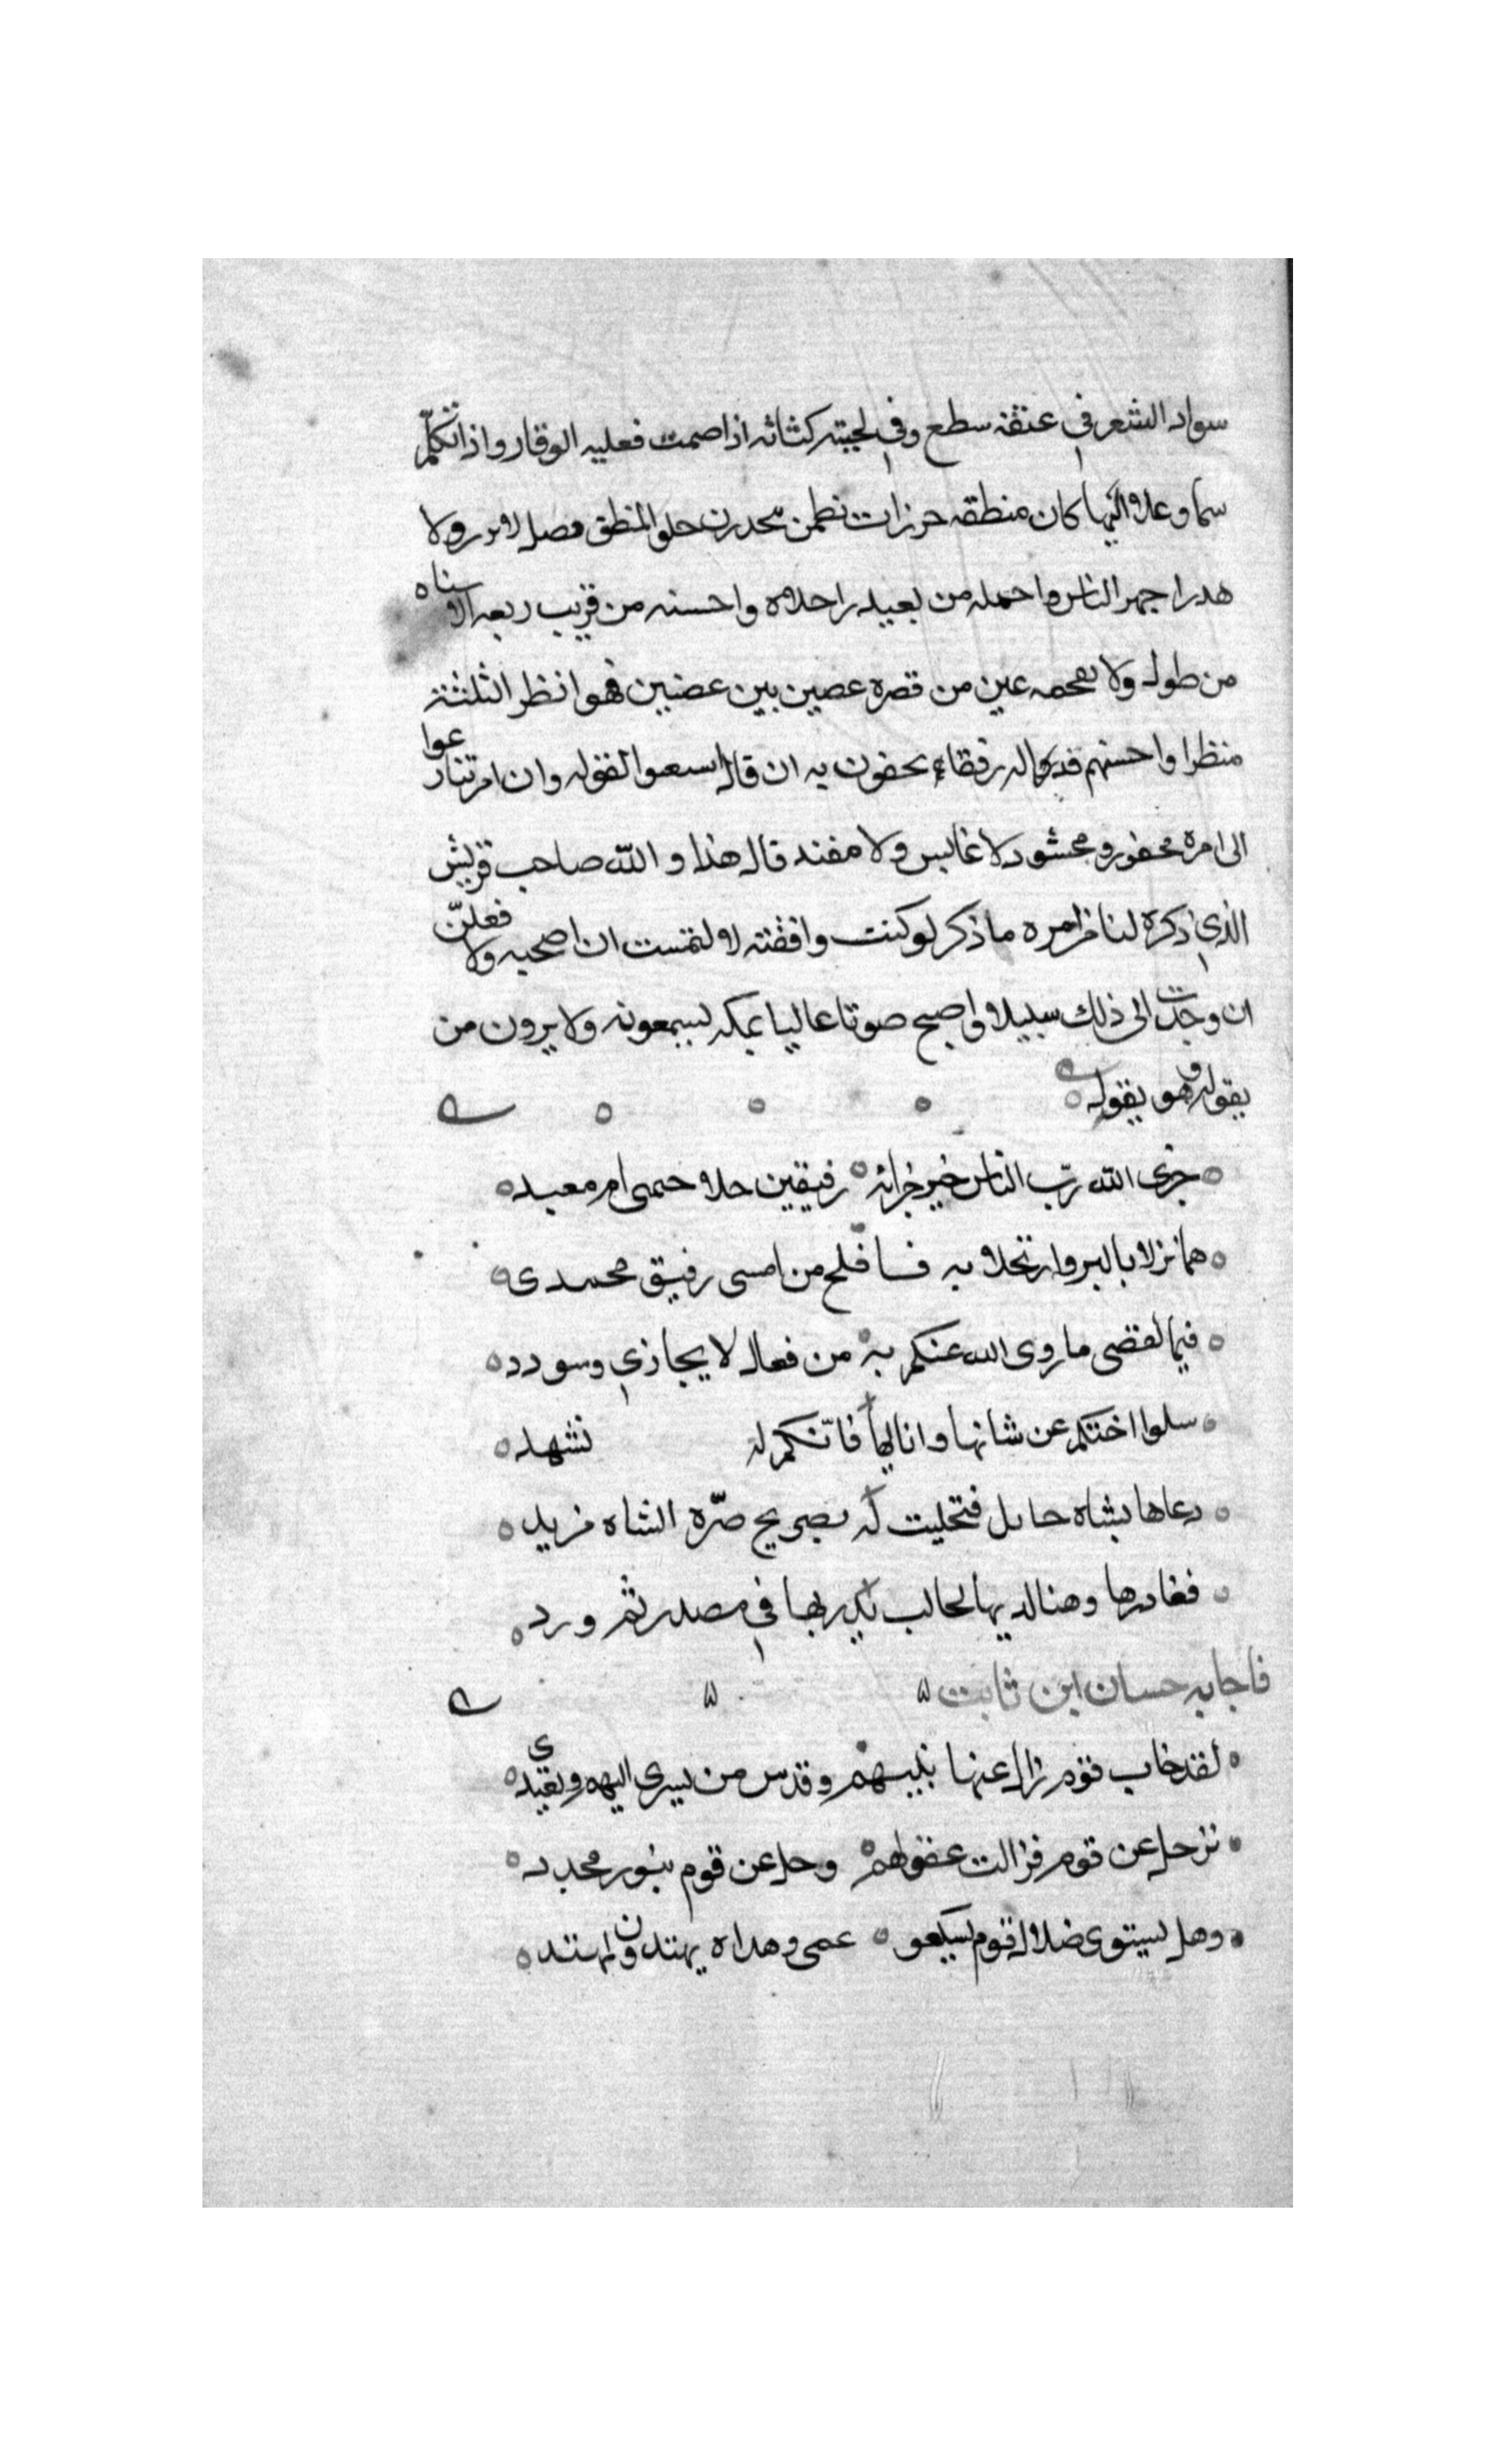 سواد الشعر في عنقه سطع وفي لحيته كثاثه اذا صمت فعليه الوقار واذا تكلّم
سما وعلاه البها كان منطقه خرزات نظمن يتحدرن حلو المنطق فصل لا نزر ولا
هدرا جهر الناس واجمله من بعيد واحلاه واحسنه من قريب ربعه لا سناه
من طول ولا تقحمه عين من قصره غصين بين غصنين فهو انظر الثلثة
منظرا واحسنهم قدرا له رفقاء يحفون به ان قال اسمعوا لقوله وان امر تبادروا
الى امره محفود ومحشود لا عابس ولا مفند قال هذا والله صاحب قريش
الذي ذكره لنا من امره ما ذكر لو كنت وافقته لا لتمست ان اصحبه ولا فعلنّ
ان وجدت الى ذلك سبيلا واصبح صوتا عاليا بمكه يسمعونه ولا يرون من
يقوله وهو يقول
جزى الله ربّ الناس خير جزائه رفيقين حلا خيمى ام معبد
هما نزلا بالبر وارتحلا به فافلح من امسى رفيق محمدى
فيما لقصى ما روى الله عنكم به من فعال لا يجازي وسودد
سلوا اختكم عن شانها وانائها فانّكم لـ تشهد
دعاها بشاه حايل فتحلبت له بصريح صرّه الشاه مزبد
فغادرها وهنا لديها لحالب بدر بها في مصدر ثم ورد
فاجابه حسان ابن ثابت
لقد خاب قوم زال عنها نبيهم وقدس من يسرى اليهم ويغتدى
ترحل عن قوم فزالت عقولهم وحل عن قوم بنور مجدد
وهل يستوى ضلال قوم تسكعو عمى وهداه يهتدون بمهتد